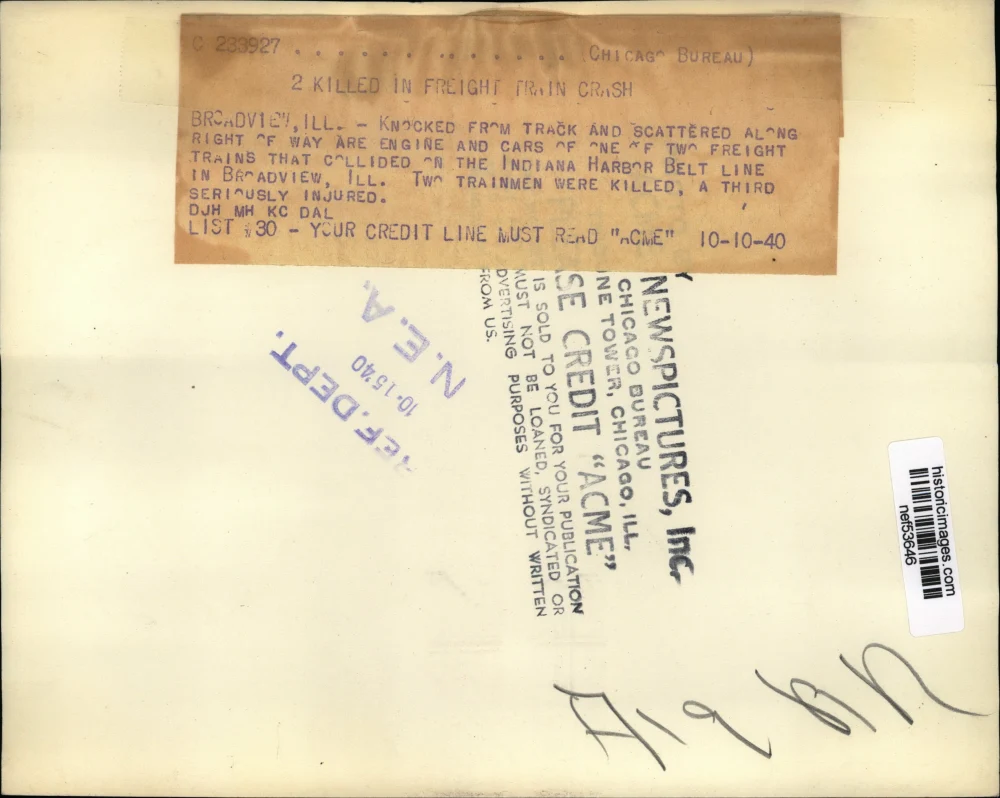 C 233927 . . . . . . . . . . . . . (CHICAGO BUREAU)
2 KILLED IN FREIGHT TRAIN CRASH
BROADVIEW, ILL. - KNOCKED FROM TRACK AND SCATTERED ALONG
RIGHT OF WAY ARE ENGINE AND CARS OF ONE OF TWO FREIGHT
TRAINS THAT COLLIDED ON THE INDIANA HARBOR BELT LINE
IN BROADVIEW, ILL. TWO TRAINMEN WERE KILLED, A THIRD
SERIOUSLY INJURED.
DJH MH KC DAL
LIST #30 - YOUR CREDIT LINE MUST READ "ACME" 10-10-40
NEWSPICTURES, Inc.
CHICAGO BUREAU
TOWER, CHICAGO, ILL.
CREDIT "ACME"
IS SOLD TO YOU FOR YOUR PUBLICATION
MUST NOT BE LOANED, SYNDICATED OR
ADVERTISING PURPOSES WITHOUT WRITTEN
FROM US.
N.E.A.
10-15'40
REF. DEPT.
historicimages.com
nef53646